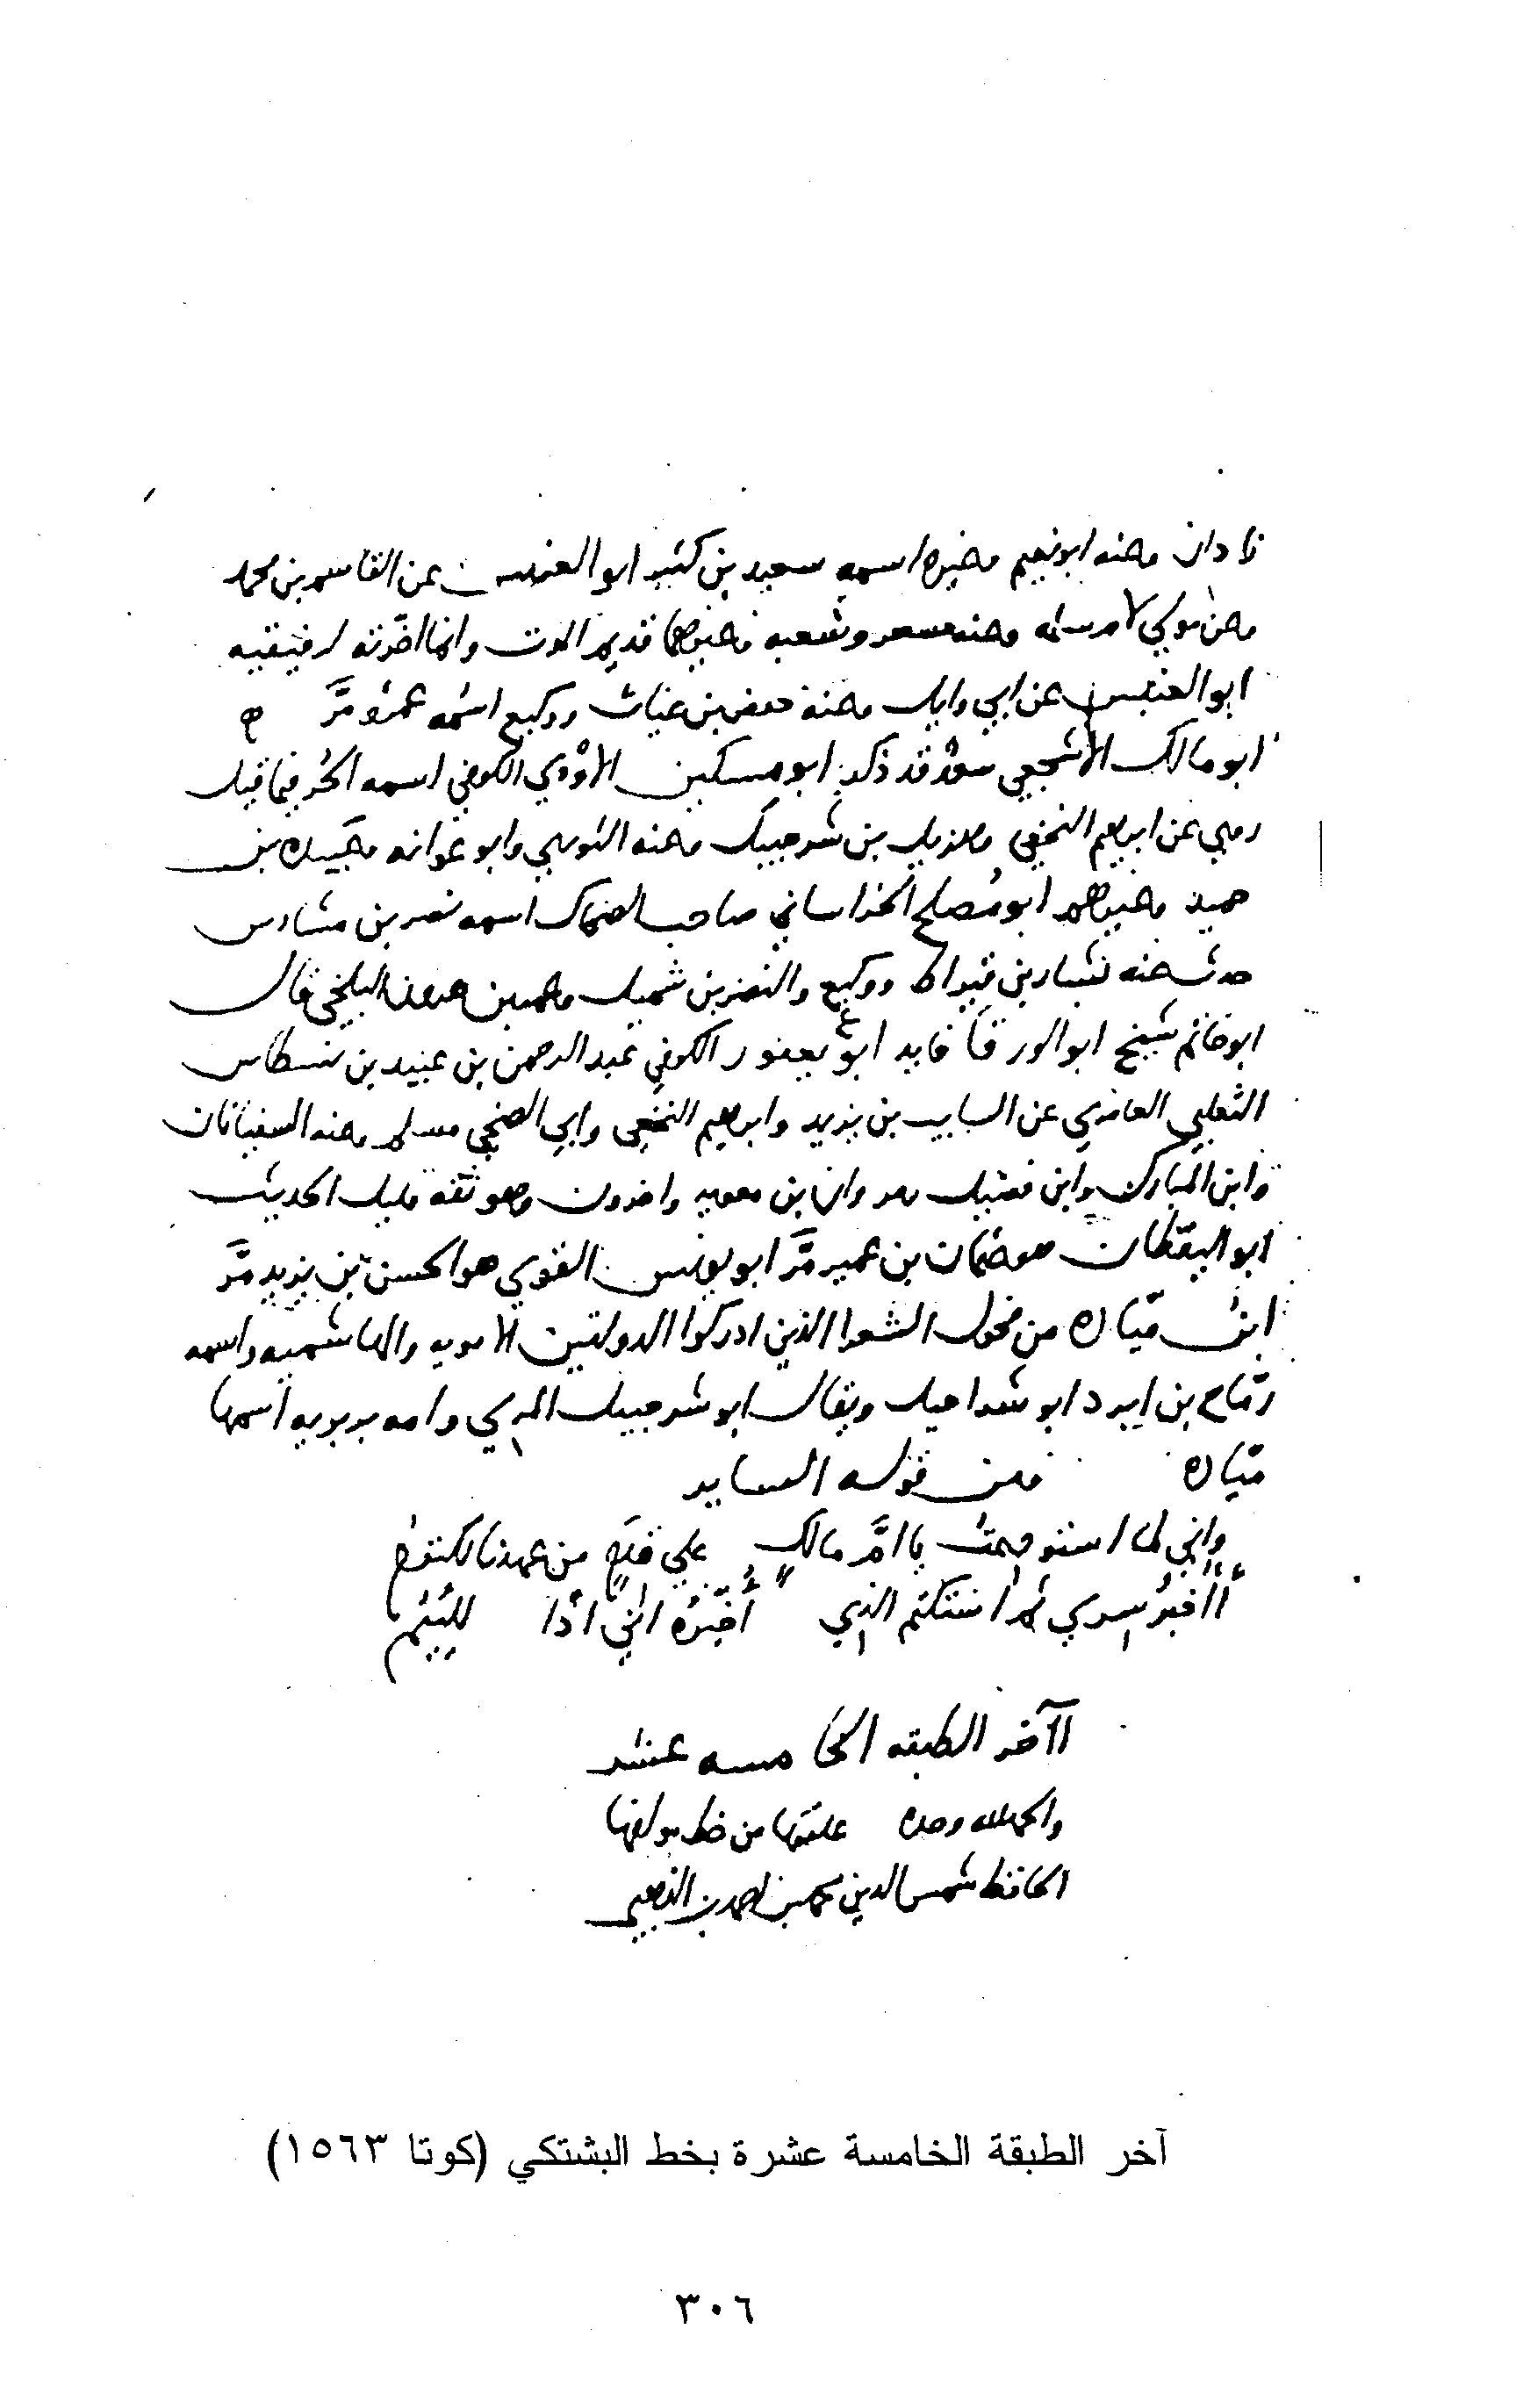 زادان وعنه ابو نعيم وغيره اسمه سعيد بن كثير ابو العنبس عن القاسم بن محمد
وعن مولى لام سلمه وعنه مسعر وشعبه وغيرهما قديم الموت وانما اخرته لرفيقيه
ابو العنبس عن ابي وايل وعنه حفص بن غياث ووكيع اسمه عمرو مرّ
ابو مالك الأشجعي سعد قد ذكر ابو مسكين الأودي الكوفي اسمه الحر فيما قيل
روى عن ابرهيم النخعي وهزيل بن شرحبيل وعنه الثوري وابو عوانه وعبيده بن
حميد وغيرهم ابو مُصلح الخراساني صاحب الضحاك اسمه نصر بن مشارس
حدث عنه بشار بن قيراط ووكيع والنضر بن شميل وعمر بن هرون البلخي قال
ابو حاتم شيخ ابو الورقا فايد ابو يعفور الكوفي عبد الرحمن بن عبيد بن نسطاس
الثعلبي العامري عن السايب بن يزيد وابرهيم النخعي وابي الضحى مسلم وعنه السفيانان
وابن المبارك وابن فضيل ومروان بن معويه واخرون وهو ثقه قليل الحديث
ابو اليقظان هو عثمان بن عمير مرّ ابو يونس القوي هو الحسن بن يزيد مرّ
ابن ميّاده من فحول الشعرا الذين ادركوا الدولتين الامويه والهاشميه واسمه
رمّاح بن ابرد ابو شراحيل ويقال ابو شرحبيل المري وامه بربريه اسمها
ميّاده ومن قوله الساير
واني لما استودعت يا امّ مالك علي قدم من عهدنا لكتوم
أاخبر سري ثم استكتم الذي أخبّره اني اذا للئيم
اآخر الطبقه الخامسه عشر
والحمد لله وحده علقتها من خط مولفها
الحافظ شمس الدين محمد بن احمد بن الذهبي
آخر الطبقة الخامسة عشرة بخط البشتكي (كوتا ١٥٦٣)
٣٠٦